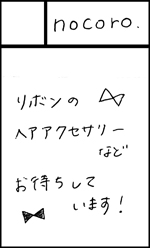 nocoro.
リボンの
ヘアアクセサリー
など
お待ちして
います!